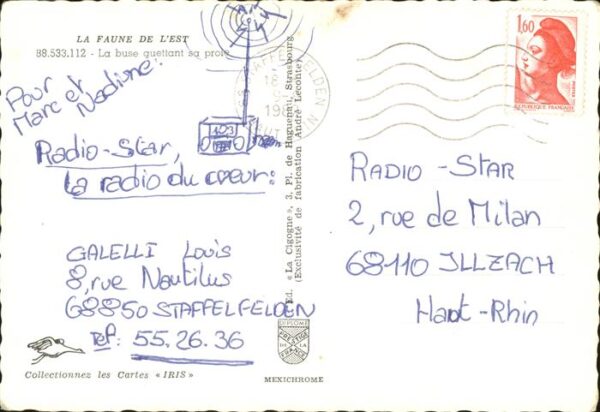 LA FAUNE DE L'EST
88.533.112 - La buse guettant sa proie
Pour
Marc et
Nadine:
103
Radio-Star,
la radio du coeur:
GALELLI Louis
8, rue Nautilus
68850 STAFFELFELDEN
Tel: 55.26.36
Collectionnez les Cartes « IRIS »
Ed. « La Cigogne », 3, Pl. de Haguenau, Strasbourg
(Exclusivité de fabrication André Leconte)
DIPLOME
PRESTIGE
DE LA
FRANCE
MEXICHROME
1,60
REPUBLIQUE FRANÇAISE
RADIO - STAR
2, rue de Milan
68110 ILLZACH
Haut-Rhin